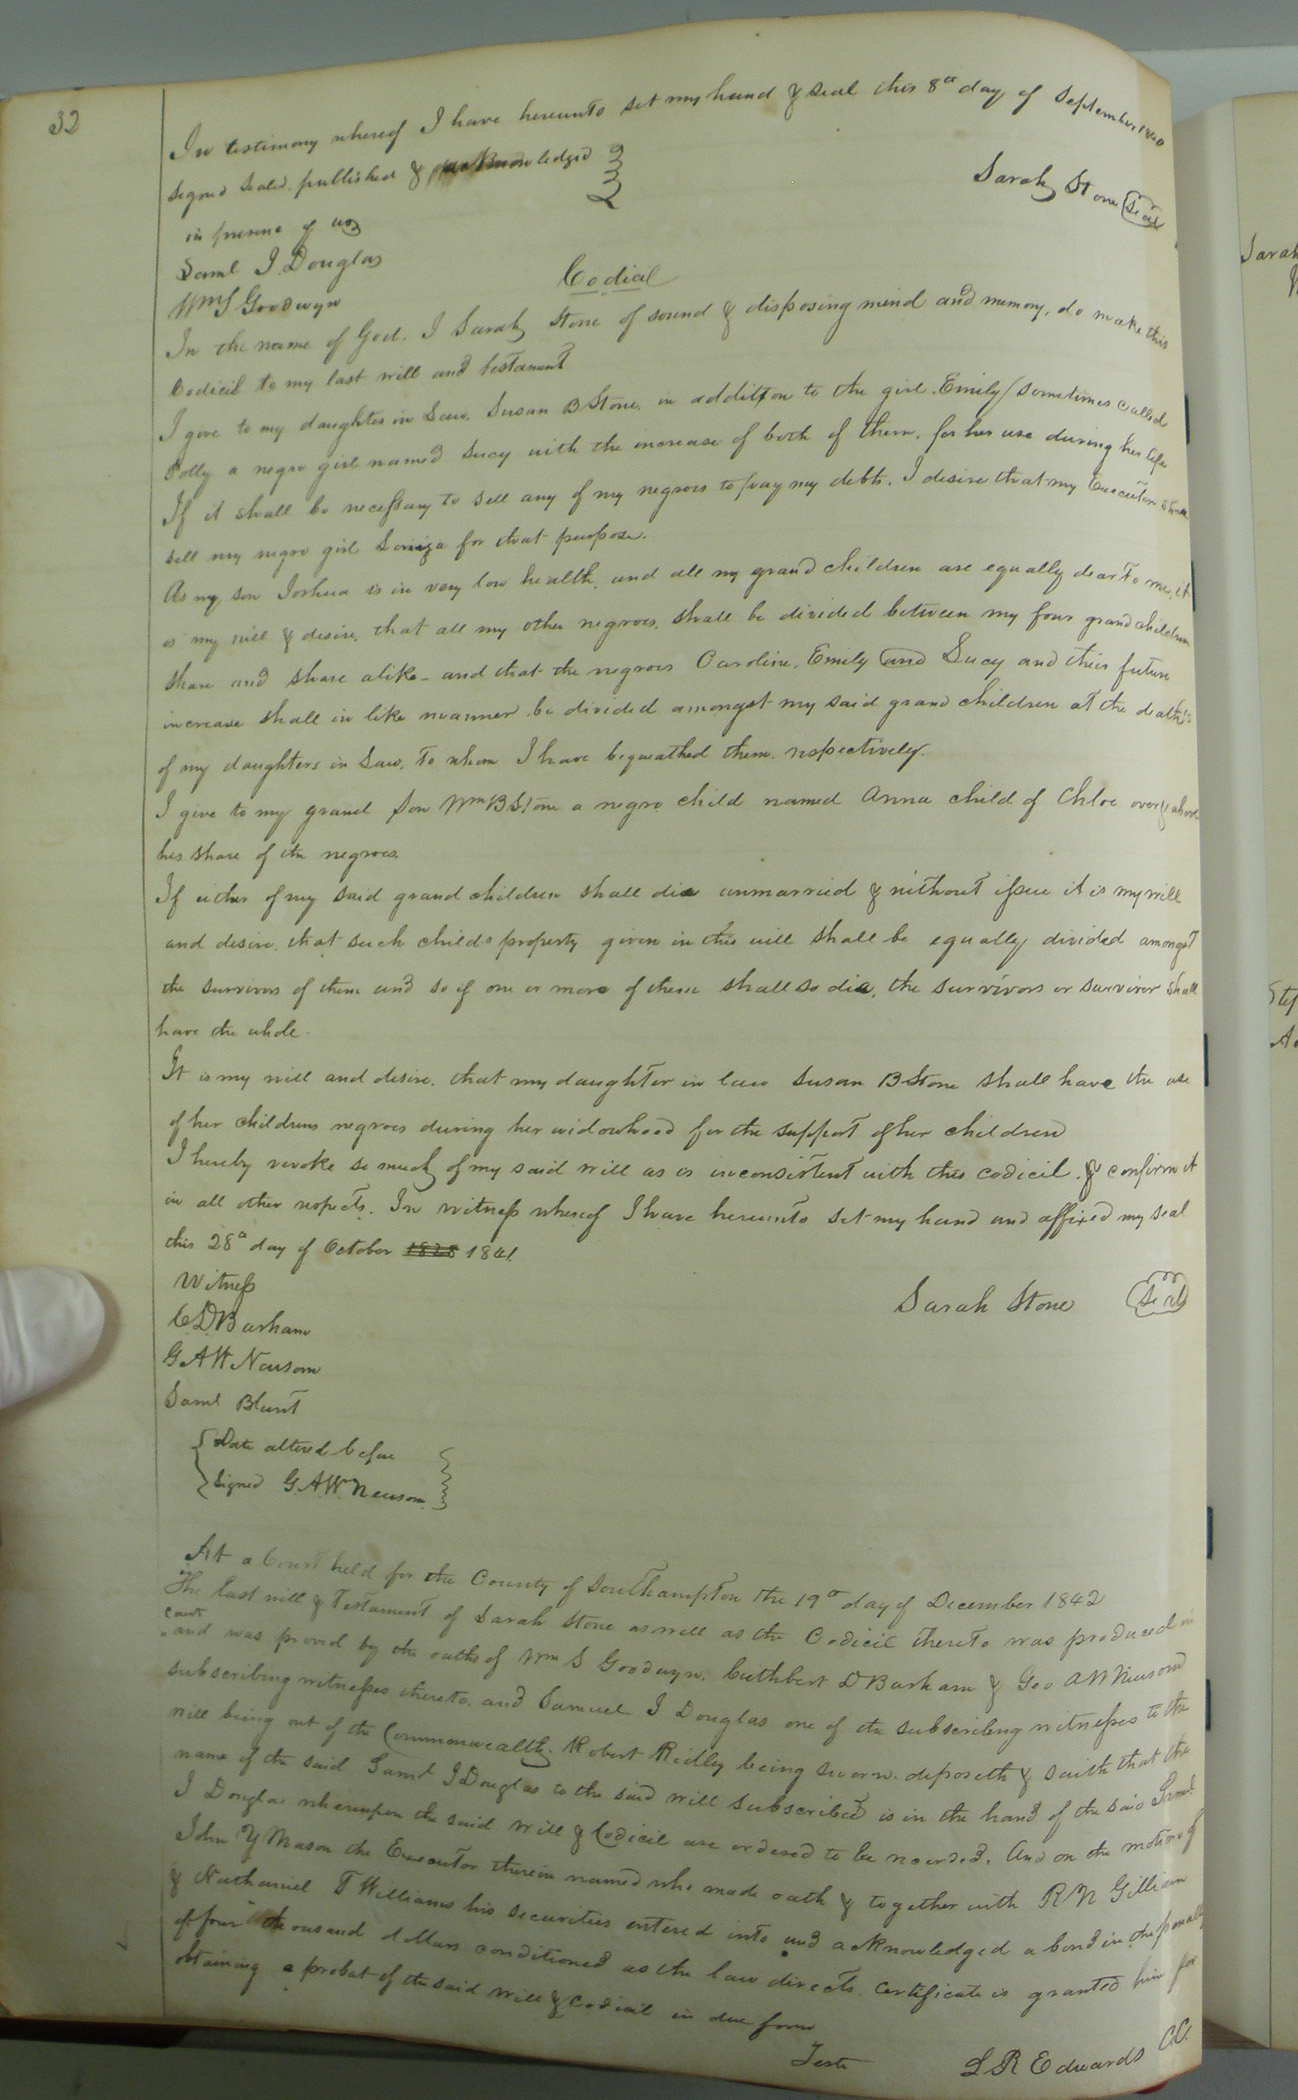 32
In testimony whereof I have hereunto set my hand & seal this 8th day of September 1840
Signed sealed published & acknowledged
in presence of us
Sarah Stone (Seal)
Saml J. Douglas
Wm S Goodwyn
Codial
In the name of God. I Sarah Stone of sound & disposing mind and memory, do make this
Codicil to my last will and testament
I give to my daughter in Law, Susan B Stone, in addition to the girl, Emily (sometimes called
Polly a negro girl named Lucy with the increase of both of them, for her use during her life
If it shall be necessary to sell any of my negroes to pay my debts, I desire that my Executor shall
sell my negro girl for that purpose.
As my son Joshua is in very low health, and all my grand children are equally dear to me, it
is my will & desire, that all my other negroes, shall be divided between my four grand children
share and share alike - and that the negroes Caroline, Emily and Lucy and their future
increase shall in like manner be divided amongst my said grand children at the deaths
of my daughters in Law, to whom I have bequeathed them, respectively.
I give to my grand son Wm B Stone a negro child named Anna child of Chloe over & above
his share of the negroes.
If either of my said grand children shall die unmarried & without issue it is my will
and desire, that such childs property given in this will shall be equally divided amongst
the survivors of them and so if one or more of them shall so die, the survivors or survivor shall
have the whole.
It is my will and desire, that my daughter in law Susan B Stone shall have the use
of her childrens negroes during her widowhood for the support of her children
I hereby revoke so much of my said will as is inconsistent with this codicil, & confirm it
in all other respects. In witness whereof I have hereunto set my hand and affixed my seal
this 28th day of October 1828 1841
Witness
Sarah Stone (Seal)
C D Barham
G. A W Newsom
Saml Blunt
Date altered before
Signed G. A. W. Newsom
At a Court held for the County of Southampton the 19th day of December 1842
The last will & Testament of Sarah Stone as well as the Codicil thereto was produced in
court
and was proved by the oaths of Wm S Goodwyn, Cuthbert D Barham & Geo A W Newsom
subscribing witnesses thereto, and Samuel J Douglas one of the subscribing witnesses to the
will being out of the Commonwealth. Robert Ridley being sworn, deposeth & saith that the
name of the said Saml J Douglas to the said will subscribed is in the hand of the said Saml
J Douglas whereupon the said will & Codicil are ordered to be recorded. And on the motion of
John Y Mason the Executor therein named who made oath & together with R N Gilliam
& Nathaniel T Williams his securities entered into and acknowledged a bond in the penalty
of four thousand dollars conditioned as the law directs, Certificate is granted him for
obtaining a probat of the said will & codicil in due form
Teste
L R Edwards C.C.